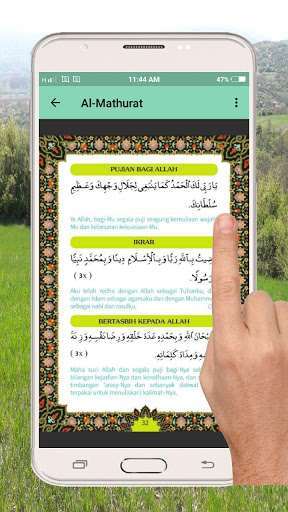 11:44 AM 47%
Al-Mathurat
PUJIAN BAGI ALLAH
يَارَبِّ لَكَ الْحَمْدُ كَمَا يَنْبَغِي لِجَلَالِ وَجْهِكَ وَعَظِيمِ
سُلْطَانِكَ.
Ya Allah, bagi-Mu segala puji seagung kemuliaan
Mu dan kebesaran kekuasaan-Mu.
IKRAR
بِاللَّهِ رَبًّا وَبِالْإِسْلَامِ دِينًا وَبِمُحَمَّدٍ نَبِيًّا
( 3x )
Aku telah redha dengan Allah sebagai Tuhanku,
dengan Islam sebagai agamaku dan dengan Muhammad
sebagai nabi dan rasulku.
BERTASBIH KEPADA ALLAH
اللَّهِ وَبِحَمْدِهِ عَدَدَ خَلْقِهِ وَرِضَا نَفْسِهِ وَزِنَةَ
وَمِدَادَ كَلِمَاتِهِ. ( 3x )
Maha suci Allah dan segala puji bagi-Nya
bilangan kejadian-Nya dan keredhaan-Nya, dan
timbangan 'arasy-Nya dan sebanyak dakwat
terpakai untuk menuliskan) kalimah-Nya.
32